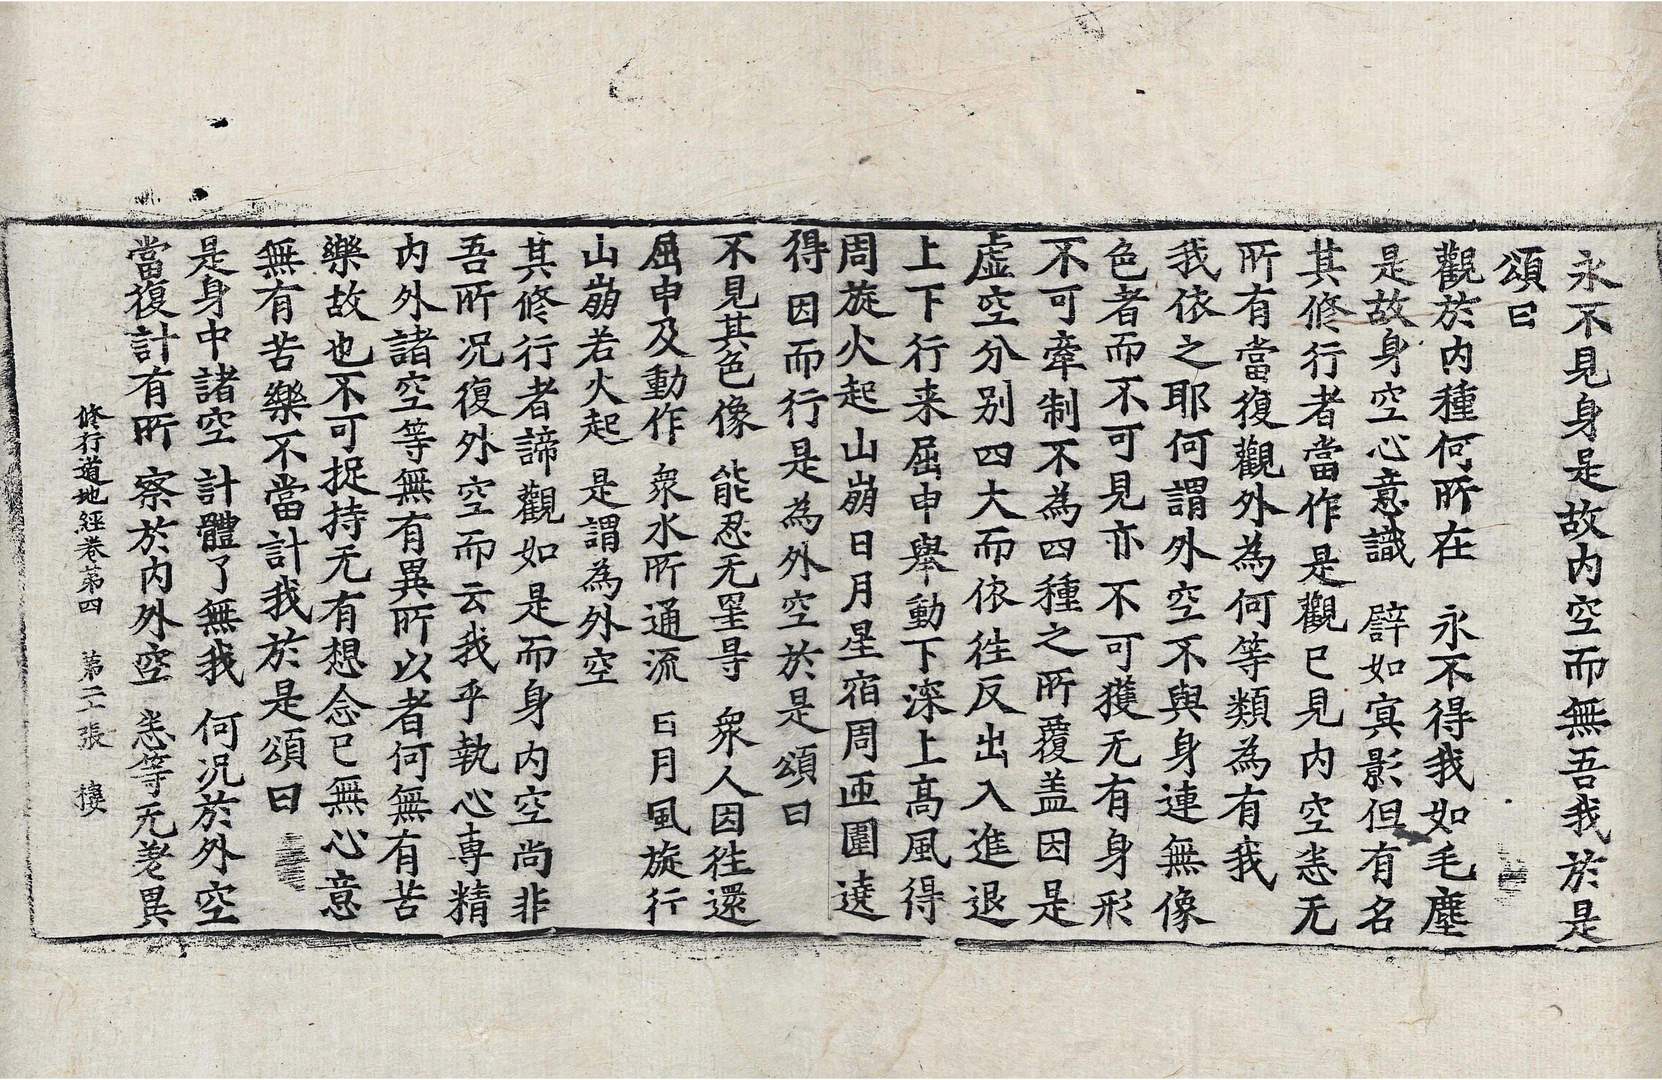 永不見身是故内空而無吾我於是
頌曰
觀於内種何所在　永不得我如毛塵
是故身空心意識　譬如寘影但有名
其修行者當作是觀已見内空悉无
所有當復觀外為何等類為有我
我依之耶何謂外空不與身連無像
色者而不可見亦不可獲无有身形
不可牽制不為四種之所覆盖因是
虛空分別四大而依往反出入進退
上下行来屈申舉動下深上高風得
周旋火起山崩日月星宿周匝圍遶
得因而行是為外空於是頌曰
不見其色像　能忍无罣㝵　衆人因往還
屈申及動作　衆水所通流　日月風旋行
山崩若火起　是謂為外空
其修行者諦觀如是而身内空尚非
吾所况復外空而云我乎執心專精
内外諸空等無有異所以者何無有苦
樂故也不可捉持无有想念已無心意
無有苦樂不當計我於是頌曰
是身中諸空　計體了無我　何况於外空
當復計有所　察於内外空　悉等无差異
修行道地經卷第四　第二張　樓